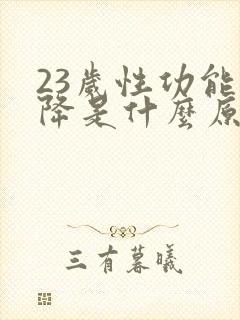 23歲性功能
降是什麼原
三有暮曦